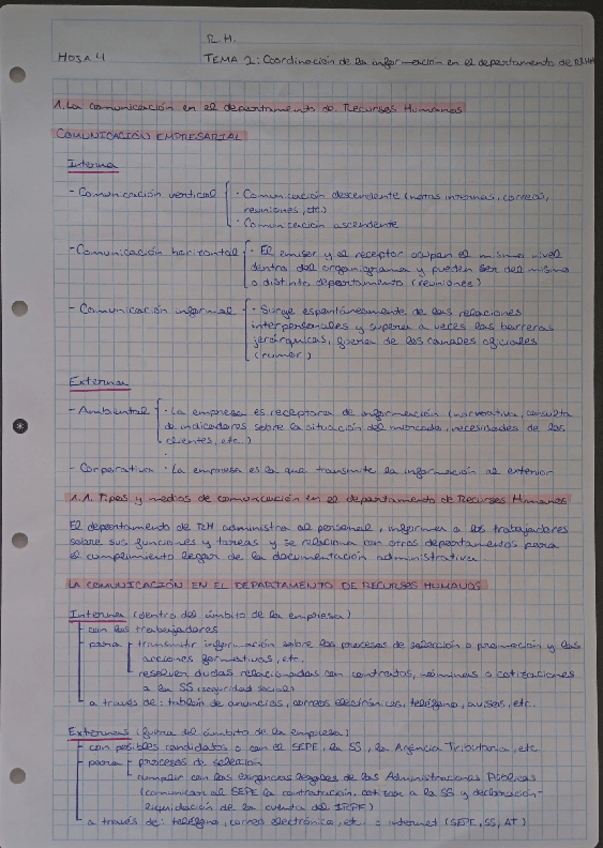 R.H.
HOJA 4 TEMA 2: Coordinación de la información en el departamento de RRHH
1. La comunicación en el departamento de Recursos Humanos
COMUNICACIÓN EMPRESARIAL
Interna
- Comunicación vertical · Comunicación descendente (notas internas, correos,
reuniones, etc.)
· Comunicación ascendente
- Comunicación horizontal · El emisor y el receptor ocupan el mismo nivel
dentro del organigrama y pueden ser del mismo
o distinto departamento (reuniones)
- Comunicación informal · Surge espontáneamente de las relaciones
interpersonales y supera a veces las barreras
jerárquicas, fuera de los canales oficiales
(rumor)
Externa
- Ambiental · La empresa es receptora de información (normativa, consulta
de indicadores sobre la situación del mercado, necesidades de los
clientes, etc.)
- Corporativa · La empresa es la que transmite la información al exterior
1.1. Tipos y medios de comunicación en el departamento de Recursos Humanos
El departamento de RH administra al personal, informa a los trabajadores
sobre sus funciones y tareas y se relaciona con otros departamentos para
el cumplimiento legal de la documentación administrativa.
LA COMUNICACIÓN EN EL DEPARTAMENTO DE RECURSOS HUMANOS
Internas (dentro del ámbito de la empresa)
con los trabajadores
para transmitir información sobre los procesos de selección o promoción y las
acciones formativas, etc.
resolver dudas relacionadas con contratos, nóminas o cotizaciones
a la SS (seguridad social)
a través de: tablón de anuncios, correos electrónicos, teléfono, avisos, etc.
Externas (fuera del ámbito de la empresa)
con posibles candidatos o con el SEPE, la SS, la Agencia Tributaria, etc
para procesos de selección
cumplir con las exigencias legales de las Administraciones Públicas
(comunicar al SEPE la contratación, cotizar a la SS y declaración-
liquidación de la cuenta del IRPF)
a través de: teléfono, correo electrónico, etc. o internet (SEPE, SS, AT)